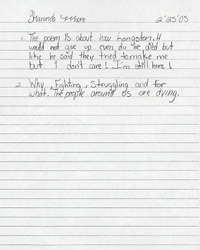 2/25/05
1. The poem is about how Langston.H
would not give up even du. he died but
like he said they tried to make me
but I don't care! I'm still here!
2. Why Fighting, Struggling and for
what. The people around us are dying.